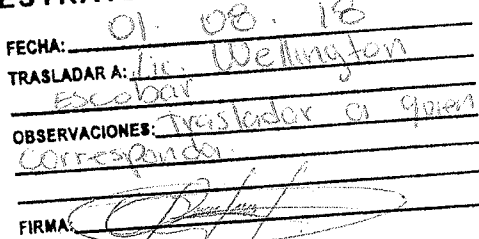 FECHA: 01. 08. 18
TRASLADAR A: Lic. Wellington
Escobar
OBSERVACIONES: Trasladar a quien
corresponda.
FIRMA: